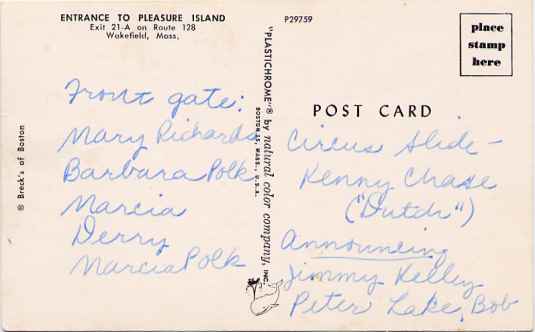 ENTRANCE TO PLEASURE ISLAND
Exit 21-A on Route 128
Wakefield, Mass,
P29759
place
stamp
here
POST CARD
© Breck's of Boston
"PLASTICHROME"® by natural color company, INC.
BOSTON 15, MASS., U.S.A.
Front gate:
Mary Richards
Barbara Polk
Marcia
Derry
Marcia Polk
Circus Slide -
Kenny Chase
("Dutch")
Announcing
Jimmy Kelley
Peter Lake, Bob